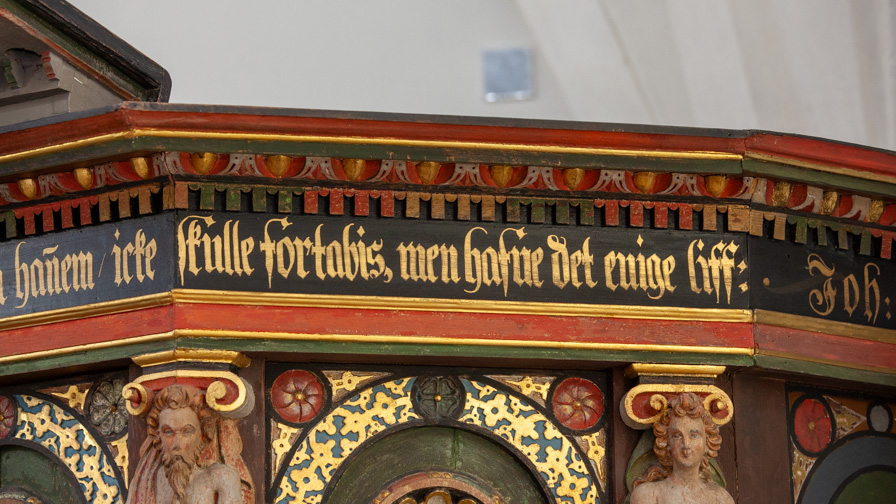 hañem / icke skulle fortabis, men hafue det enige liff: Joh.